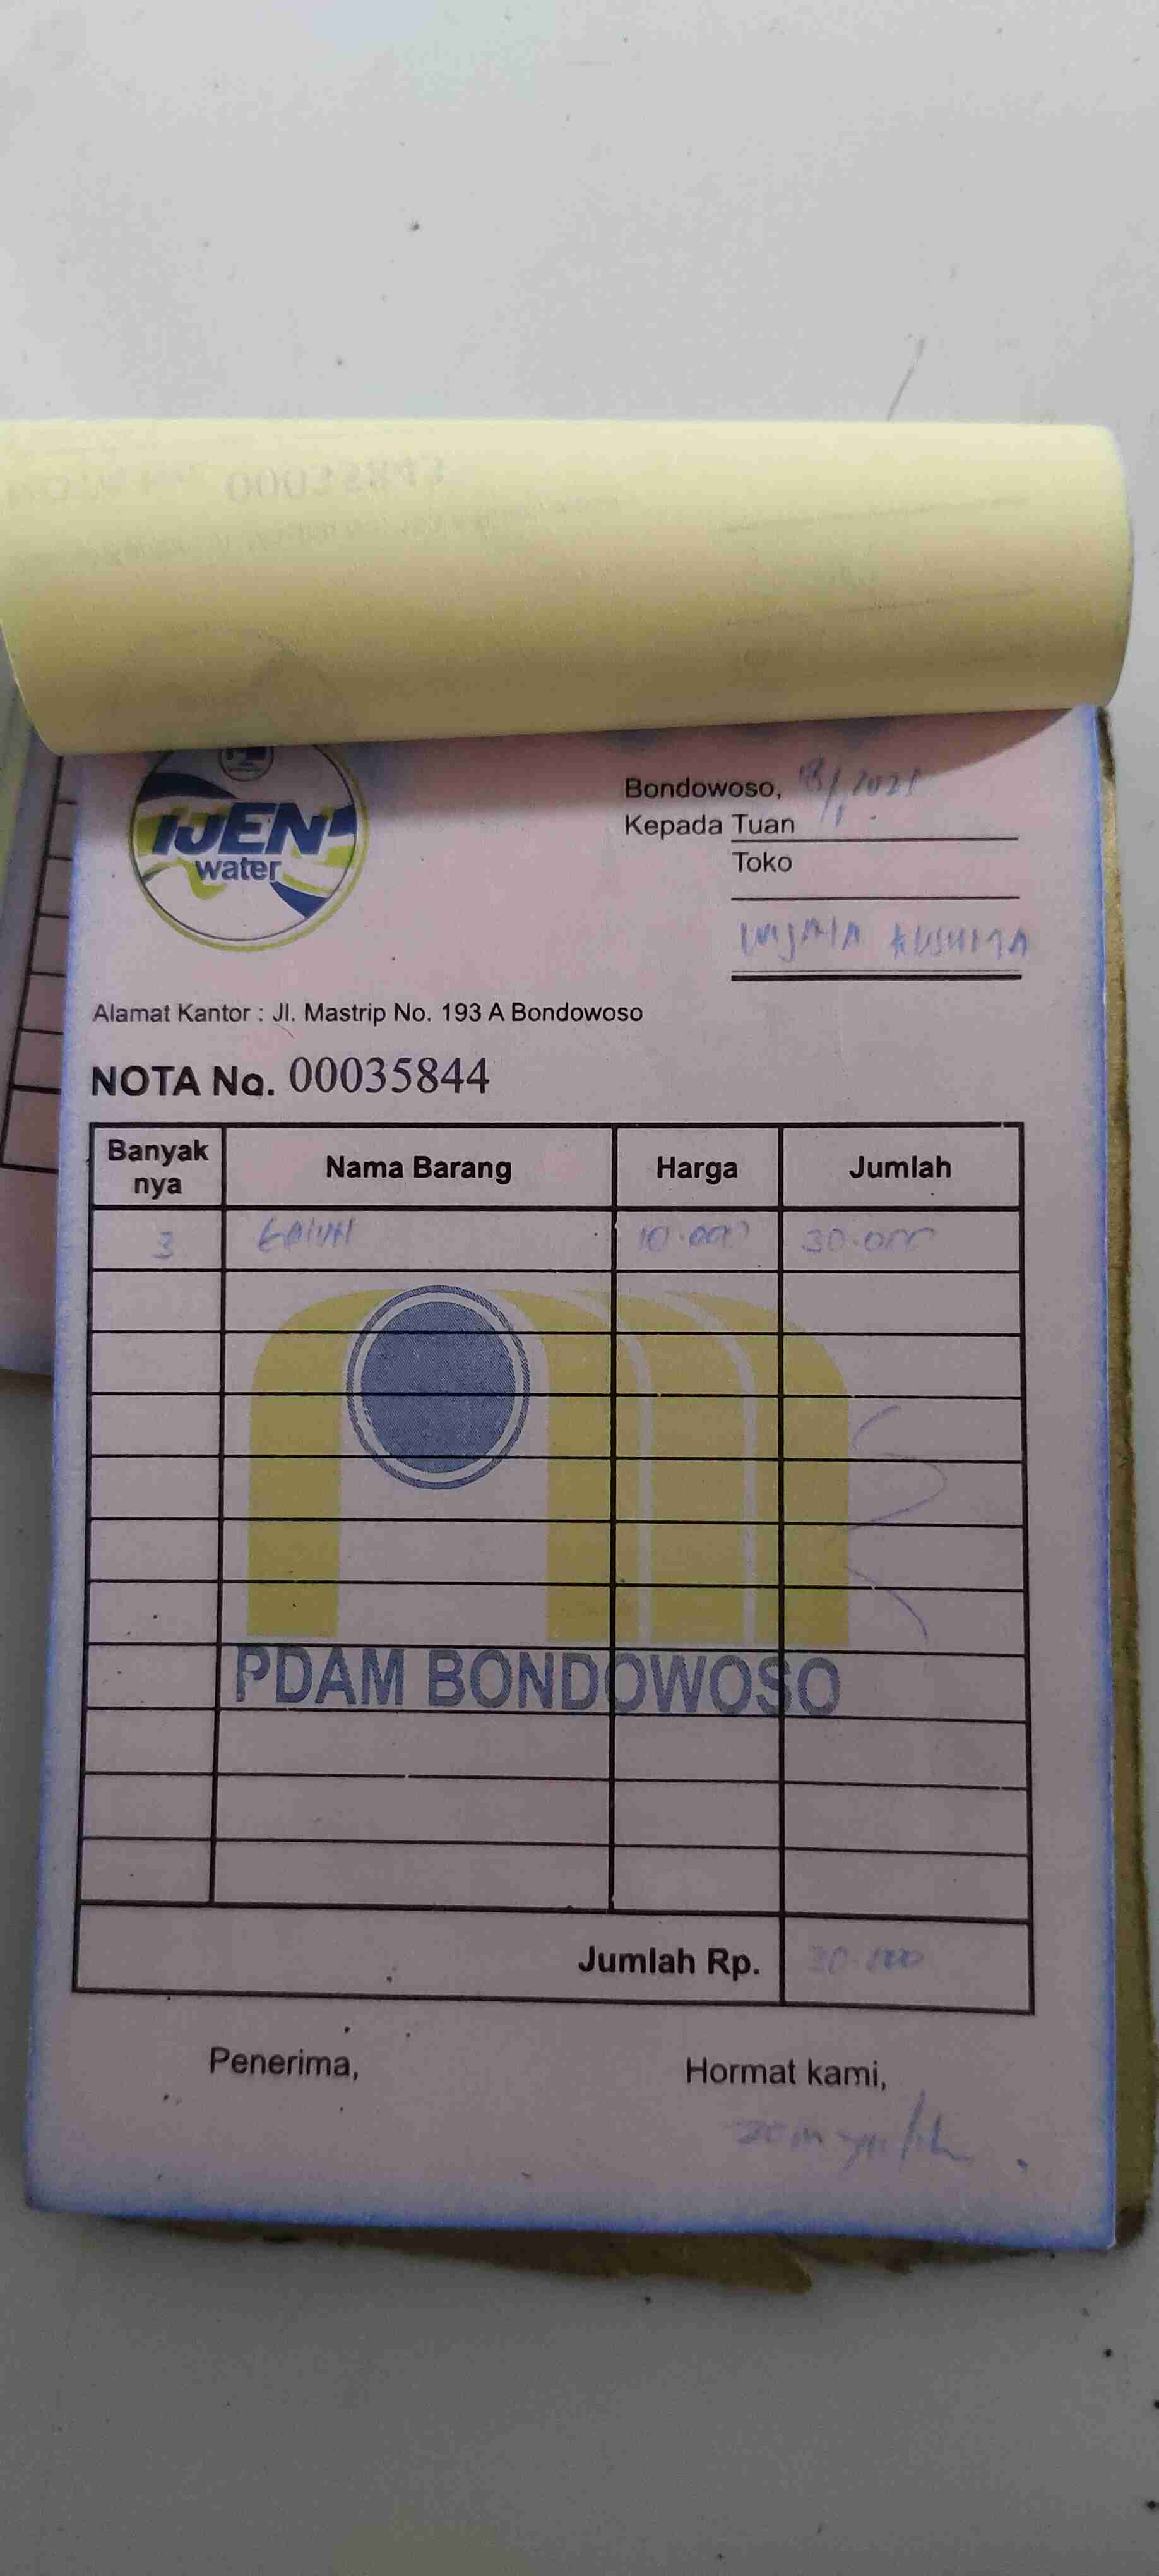 IJEN
water
Bondowoso, 18/1 2021
Kepada Tuan
Toko
WIJAYA KUSUMA
Alamat Kantor : Jl. Mastrip No. 193 A Bondowoso
NOTA No. 00035844
Banyak nya Nama Barang Harga Jumlah
3 10.000 30.000
PDAM BONDOWOSO
Jumlah Rp. 30.000
Penerima, Hormat kami,